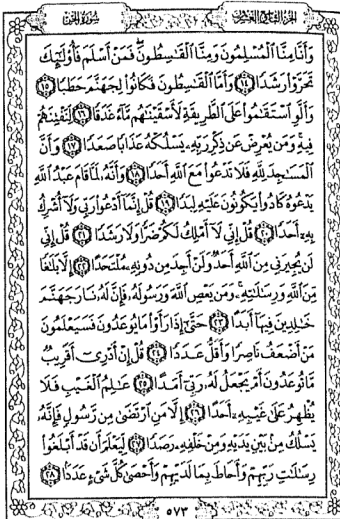 الجزء التاسع والعشرون سورة الجن
وَأَنَّا مِنَّا ٱلْمُسْلِمُونَ وَمِنَّا ٱلْقَٰسِطُونَ فَمَنْ أَسْلَمَ فَأُو۟لَٰٓئِكَ
تَحَرَّوْا۟ رَشَدًا ١٤ وَأَمَّا ٱلْقَٰسِطُونَ فَكَانُوا۟ لِجَهَنَّمَ حَطَبًا ١٥
وَأَلَّوِ ٱسْتَقَٰمُوا۟ عَلَى ٱلطَّرِيقَةِ لَأَسْقَيْنَٰهُم مَّآءً غَدَقًا ١٦ لِّنَفْتِنَهُمْ
فِيهِ وَمَن يُعْرِضْ عَن ذِكْرِ رَبِّهِۦ يَسْلُكْهُ عَذَابًا صَعَدًا ١٧ وَأَنَّ
ٱلْمَسَٰجِدَ لِلَّهِ فَلَا تَدْعُوا۟ مَعَ ٱللَّهِ أَحَدًا ١٨ وَأَنَّهُۥ لَمَّا قَامَ عَبْدُ ٱللَّهِ
يَدْعُوهُ كَادُوا۟ يَكُونُونَ عَلَيْهِ لِبَدًا ١٩ قُلْ إِنَّمَآ أَدْعُوا۟ رَبِّى وَلَآ أُشْرِكُ
بِهِۦٓ أَحَدًا ٢٠ قُلْ إِنِّى لَآ أَمْلِكُ لَكُمْ ضَرًّا وَلَا رَشَدًا ٢١ قُلْ إِنِّى
لَن يُجِيرَنِى مِنَ ٱللَّهِ أَحَدٌ وَلَنْ أَجِدَ مِن دُونِهِۦ مُلْتَحَدًا ٢٢ إِلَّا بَلَٰغًا
مِّنَ ٱللَّهِ وَرِسَٰلَٰتِهِۦ وَمَن يَعْصِ ٱللَّهَ وَرَسُولَهُۥ فَإِنَّ لَهُۥ نَارَ جَهَنَّمَ
خَٰلِدِينَ فِيهَآ أَبَدًا ٢٣ حَتَّىٰٓ إِذَا رَأَوْا۟ مَا يُوعَدُونَ فَسَيَعْلَمُونَ
مَنْ أَضْعَفُ نَاصِرًا وَأَقَلُّ عَدَدًا ٢٤ قُلْ إِنْ أَدْرِىٓ أَقَرِيبٌ
مَّا تُوعَدُونَ أَمْ يَجْعَلُ لَهُۥ رَبِّىٓ أَمَدًا ٢٥ عَٰلِمُ ٱلْغَيْبِ فَلَا
يُظْهِرُ عَلَىٰ غَيْبِهِۦٓ أَحَدًا ٢٦ إِلَّا مَنِ ٱرْتَضَىٰ مِن رَّسُولٍ فَإِنَّهُۥ
يَسْلُكُ مِنۢ بَيْنِ يَدَيْهِ وَمِنْ خَلْفِهِۦ رَصَدًا ٢٧ لِّيَعْلَمَ أَن قَدْ أَبْلَغُوا۟
رِسَٰلَٰتِ رَبِّهِمْ وَأَحَاطَ بِمَا لَدَيْهِمْ وَأَحْصَىٰ كُلَّ شَىْءٍ عَدَدًۢا ٢٨
٥٧٣